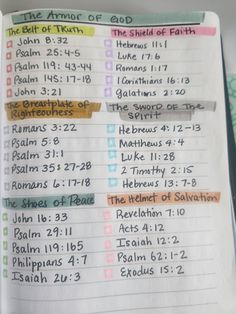 The Armor of GOD
The Belt of TRuth
John 8:32
Psalm 25:4-5
Psalm 119:43-44
Psalm 145:17-18
John 3:21
The Shield of Faith
Hebrews 11:1
Luke 17:6
Romans 1:17
1 Corinthians 16:13
Galatians 2:20
The Breastplate of
Righteousness
Romans 3:22
Psalm 5:8
Psalm 31:1
Psalm 35:27-28
Romans 6:17-18
The SWORD OF THE
SPIRIT
Hebrews 4:12-13
Matthews 4:4
Luke 11:28
2 Timothy 2:15
Hebrews 13:7-8
The Shoes of Peace
John 16:33
Psalm 29:11
Psalm 119:165
Philippians 4:7
Isaiah 26:3
The Helmet of Salvation
Revelation 7:10
Acts 4:12
Isaiah 12:2
Psalm 62:1-2
Exodus 15:2